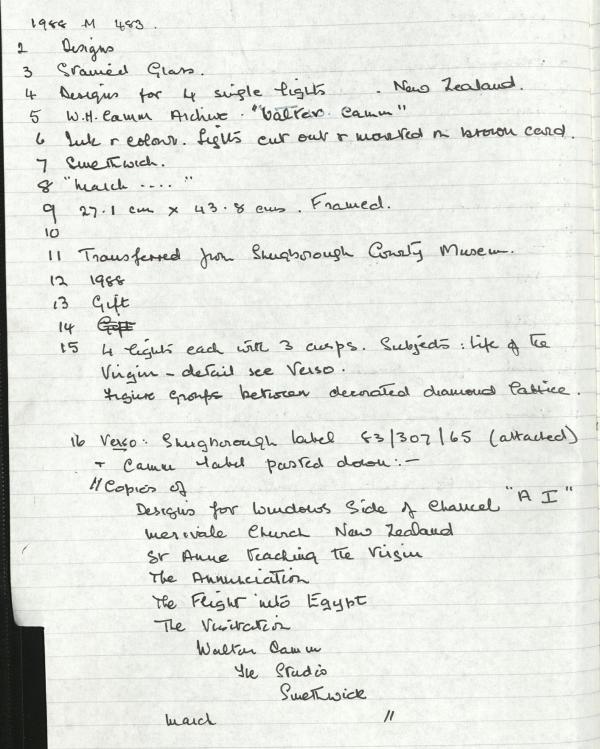 1988 M 483.
2 Designs
3 Stained Glass.
4 Designs for 4 single lights . New Zealand.
5 W.H. Camm Archive. "Walter Camm"
6 Ink & colour. Lights cut out & mounted on brown card.
7 Smethwick.
8 "March ...."
9 27.1 cm x 43.8 cms. Framed.
10
11 Transferred from Shugborough County Museum.
12 1988
13 Gift
14 Gift
15 4 lights each with 3 cusps. Subjects: Life of the
Virgin - detail see Verso.
Figure groups between decorated diamond lattice.
16 Verso: Shugborough label 83/307/65 (attached)
+ Camm label pasted down:-
"Copies of
Designs for Windows Side of Chancel "A I"
Merivale Church New Zealand
St Anne teaching the Virgin
The Annunciation
The Flight into Egypt
The Visitation
Walter Camm
The Studio
Smethwick
March "